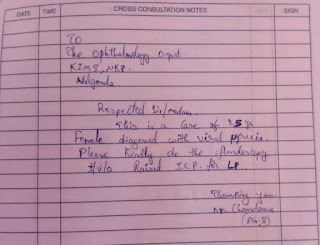 CROSS CONSULTATION NOTES
DATE TIME SIGN
TO
The Ophthalmology Dept
KIMS, NKP.
Nalgonda
Respected Sir/madam,
This is a case of 35 yr
Female diagnosed with viral pyrexia.
Please kindly do the fundoscopy
I/v/o Raised ICP. for LP.
Thanking you
Dr. Chandana
(PG II)